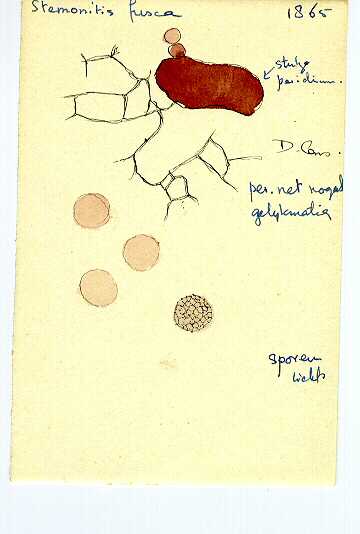 Stemonitis fusca 1865
stukje
peridium.
D. Cons.
per. net nogal
gelijkmatig
sporen
licht